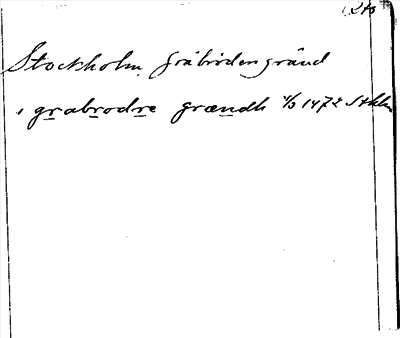 Stockholm, Gråbrödengränd
i grabrodre grændh 4/3 1472 Sthlm